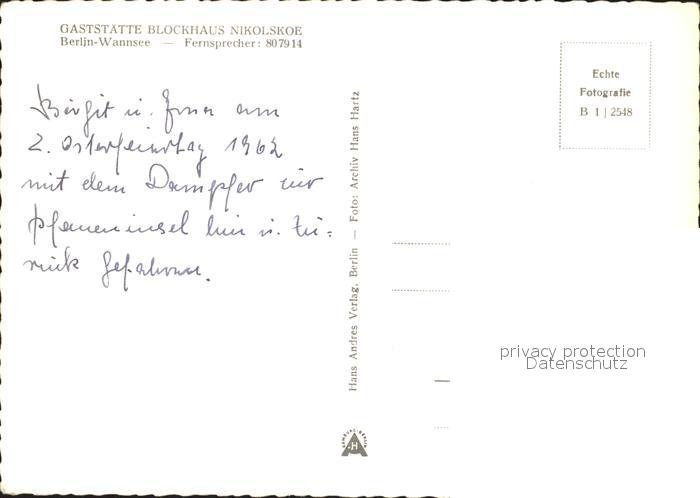 GASTSTÄTTE BLOCKHAUS NIKOLSKOE
Berlin-Wannsee — Fernsprecher: 80 79 14
Birgit u. am
2. Osterfeiertag 1962
mit dem Dampfer zur
Pfaueninsel hin u. zu=
rück gefahren.
Hans Andres Verlag, Berlin — Foto: Archiv Hans Hartz
HAMBURG-BERLIN
H
Echte
Fotografie
B 1 | 2548
privacy protection
Datenschutz